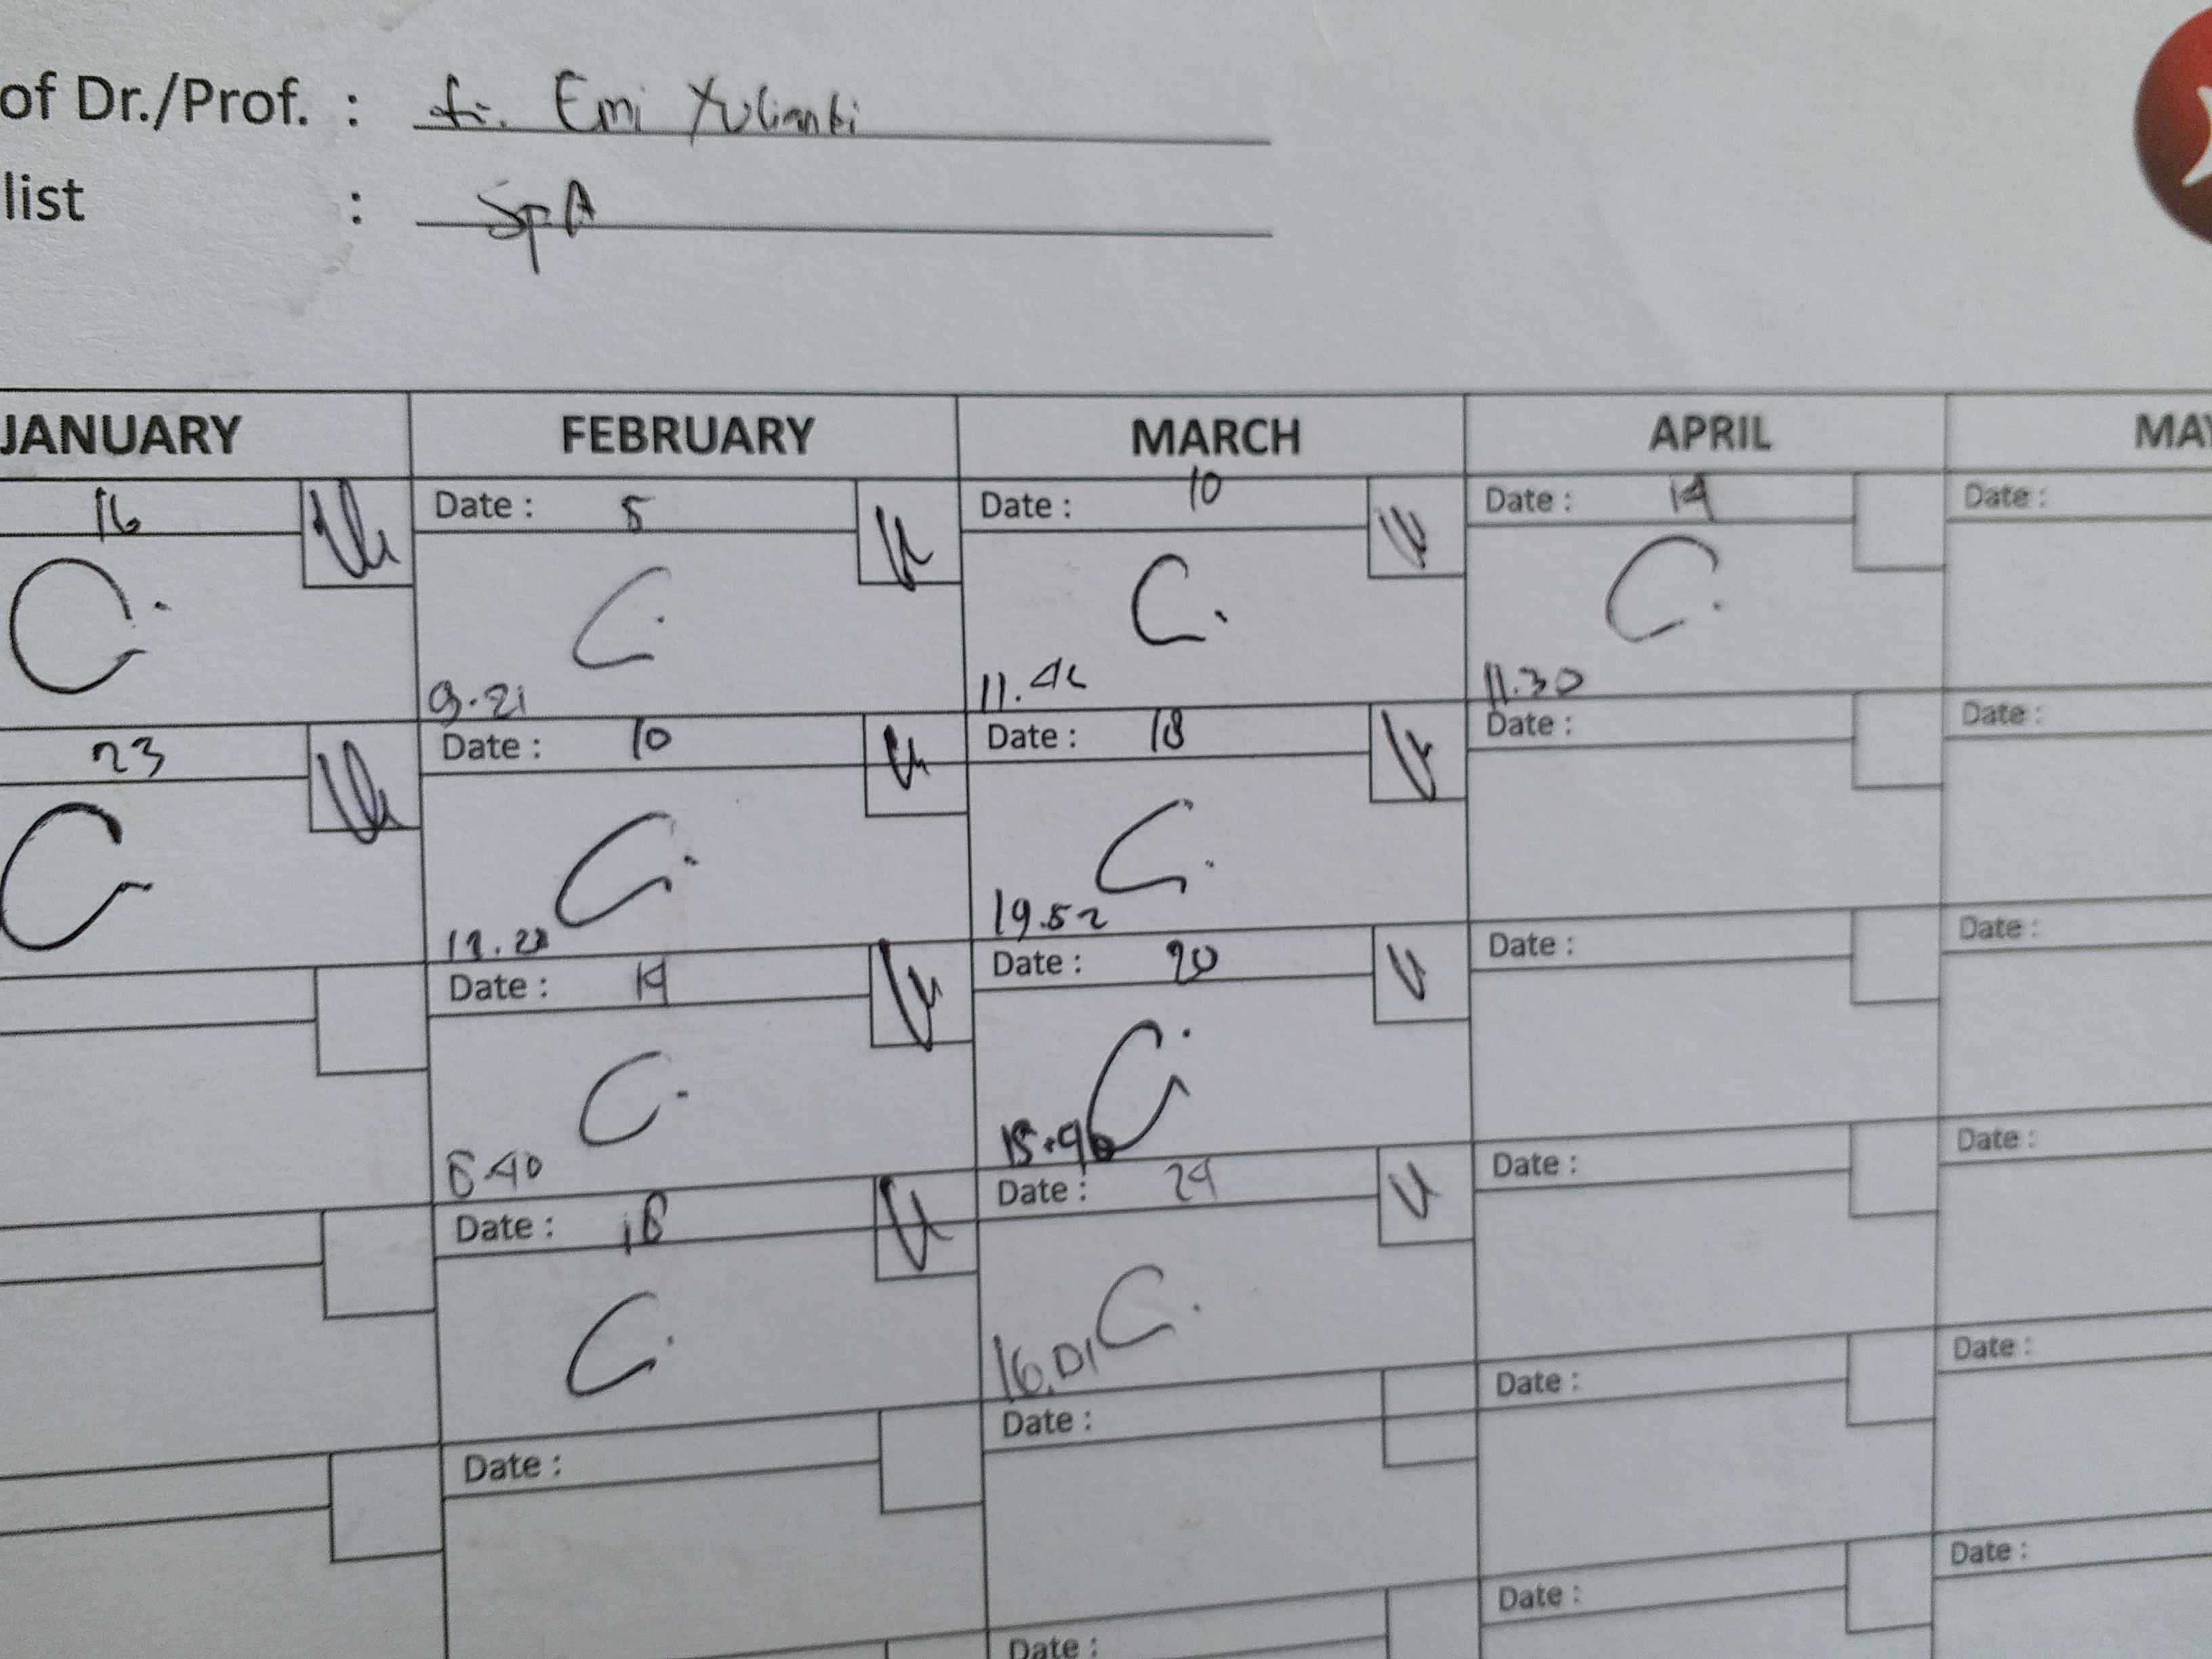 of Dr./Prof. : dr. Emi Yulianti
list : SpA
JANUARY FEBRUARY MARCH APRIL MAY
16 Date : 5 Date : 10 Date : 14 Date :
C. C. C. C.
9.21 11.42 11.30
23 Date : 10 Date : 18 Date : Date :
C C. C.
19.52
Date : 14 Date : 20 Date : Date :
C. C.
8.40
Date : 18 Date : 24 Date : Date :
C. C.
16.01
Date : Date : Date : Date :
Date : Date : Date :